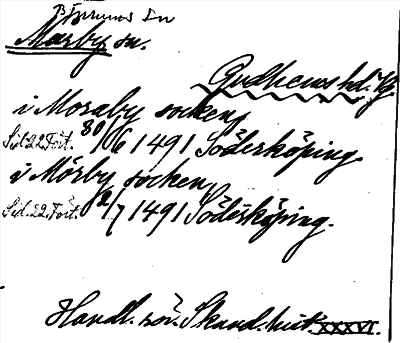 Bjurums sn
Marby sn.
Gudhems hd. Vg.
i Moraby socken,
Sid. 22. Fört. 30/6 1491 Söderköping.
i Mörby socken,
Sid. 22. Fört. 2/7 1491 Söderköping.
Handl. rör. Skand. hist. XXXVI.